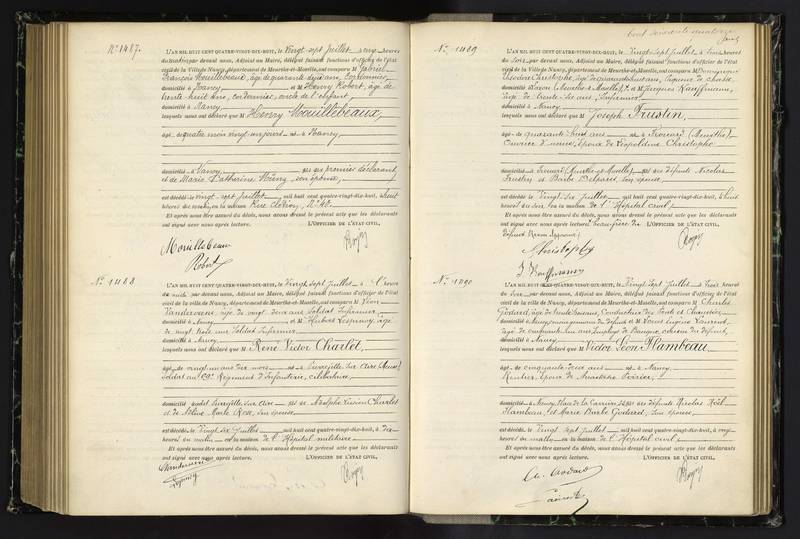 N° 1487.
L'AN MIL HUIT CENT QUATRE-VINGT-DIX-HUIT, le Vingt sept Juillet à onze heures
du matin, par devant nous, Adjoint au Maire, délégué faisant fonctions d'officier de l'état
civil de la Ville de Nancy, département de Meurthe-et-Moselle, ont comparu M Gabriel
François Mouillebeaux, âgé de quarante ans, Cordonnier,
domicilié à Nancy et M Henry Robert, âgé de
trente huit ans, cordonnier, oncle de l'enfant
domicilié à Nancy
lesquels nous ont déclaré que M Henry Mouillebeaux,
âgé de quatre mois vingt un jours né à Nancy
domicilié à Nancy fils du premier déclarant
et de Marie Catherine son épouse,
est décédé le vingt-sept juillet mil huit cent quatre-vingt-dix-huit, à huit
heures du matin, en la maison Rue N° 40.
Et après nous être assuré du décès, nous avons dressé le présent acte que les déclarants
ont signé avec nous après lecture. L'OFFICIER DE L'ÉTAT CIVIL,
Mouillebeaux
Robert
N° 1488
L'AN MIL HUIT CENT QUATRE-VINGT-DIX-HUIT, le Vingt sept Juillet à heures
du par devant nous, Adjoint au Maire, délégué faisant fonctions d'officier de l'état
civil de la ville de Nancy, département de Meurthe-et-Moselle, ont comparu M Léon
âgé de vingt deux ans Soldat Infirmier
domicilié à Nancy et M Hubert âgé
de vingt trois ans Soldat Infirmier
domicilié à Nancy
lesquels nous ont déclaré que M René Victor Charlot,
âgé de vingt un ans dix mois né à Pierrefitte sur Aire (Meuse)
Soldat au 69e Régiment d'Infanterie, célibataire,
domicilié audit Pierrefitte sur Aire fils de Adolphe Lucien Charlot
et de Marie Rose, son épouse,
est décédé le Vingt six Juillet mil huit cent quatre-vingt-dix-huit, à dix
heures du matin en la maison de l'Hôpital militaire
Et après nous être assuré du décès, nous avons dressé le présent acte que les déclarants
ont signé avec nous après lecture. L'OFFICIER DE L'ÉTAT CIVIL,
N° 1489
L'AN MIL HUIT CENT QUATRE-VINGT-DIX-HUIT, le Vingt Sept Juillet à heures
du soir, par devant nous, Adjoint au Maire, délégué faisant fonctions d'officier de l'état
civil de la Ville de Nancy, département de Meurthe-et-Moselle, ont comparu M
Théodore Christophe, âgé de quarante huit ans,
domicilié à (Meurthe et Moselle), et M Jacques Kauffmann,
âgé de trente six ans, Infirmier
domicilié à Nancy
lesquels nous ont déclaré que M Joseph Frustin,
âgé de quarante huit ans né à Frouard (Meurthe)
Ouvrier d'usine, époux de Léopoldine Christophe
domicilié à Frouard (Meurthe et Moselle), fils des défunts Nicolas
Frustin et Barbe son épouse
est décédé le Vingt Six Juillet mil huit cent quatre-vingt-dix-huit, à huit
heures du soir, en la maison de l'Hôpital civil,
Et après nous être assuré du décès, nous avons dressé le présent acte que les déclarants
ont signé avec nous après lecture. beau-frère du L'OFFICIER DE L'ÉTAT CIVIL,
défunt
Christophe
J Kauffmann
N° 1490
L'AN MIL HUIT CENT QUATRE-VINGT-DIX-HUIT, le Vingt Sept Juillet à trois heures
du Soir par devant nous, Adjoint au Maire, délégué faisant fonctions d'officier de l'état
civil de la ville de Nancy, département de Meurthe-et-Moselle, ont comparu M Charles
Godard, âgé de trente ans, Conducteur des Ponts et Chaussées,
domicilié à Nancy, cousin germain du défunt et M Louis Eugène Laurent,
âgé de cinquante six ans, Employé de Banque, cousin du défunt,
domicilié à Nancy
lesquels nous ont déclaré que M Victor Léon Flambeau,
âgé de cinquante deux ans né à Nancy
Rentier, époux de Anastasie
domicilié à Nancy, Place de la Carrière fils des défunts Nicolas Noël
Flambeau, et Marie Barbe Godard, son épouse,
est décédé le Vingt sept Juillet mil huit cent quatre-vingt-dix-huit, à onze
heures du matin en la maison de l'Hôpital civil,
Et après nous être assuré du décès, nous avons dressé le présent acte que les déclarants
ont signé avec nous après lecture. L'OFFICIER DE L'ÉTAT CIVIL,
Ch. Godard
Laurent